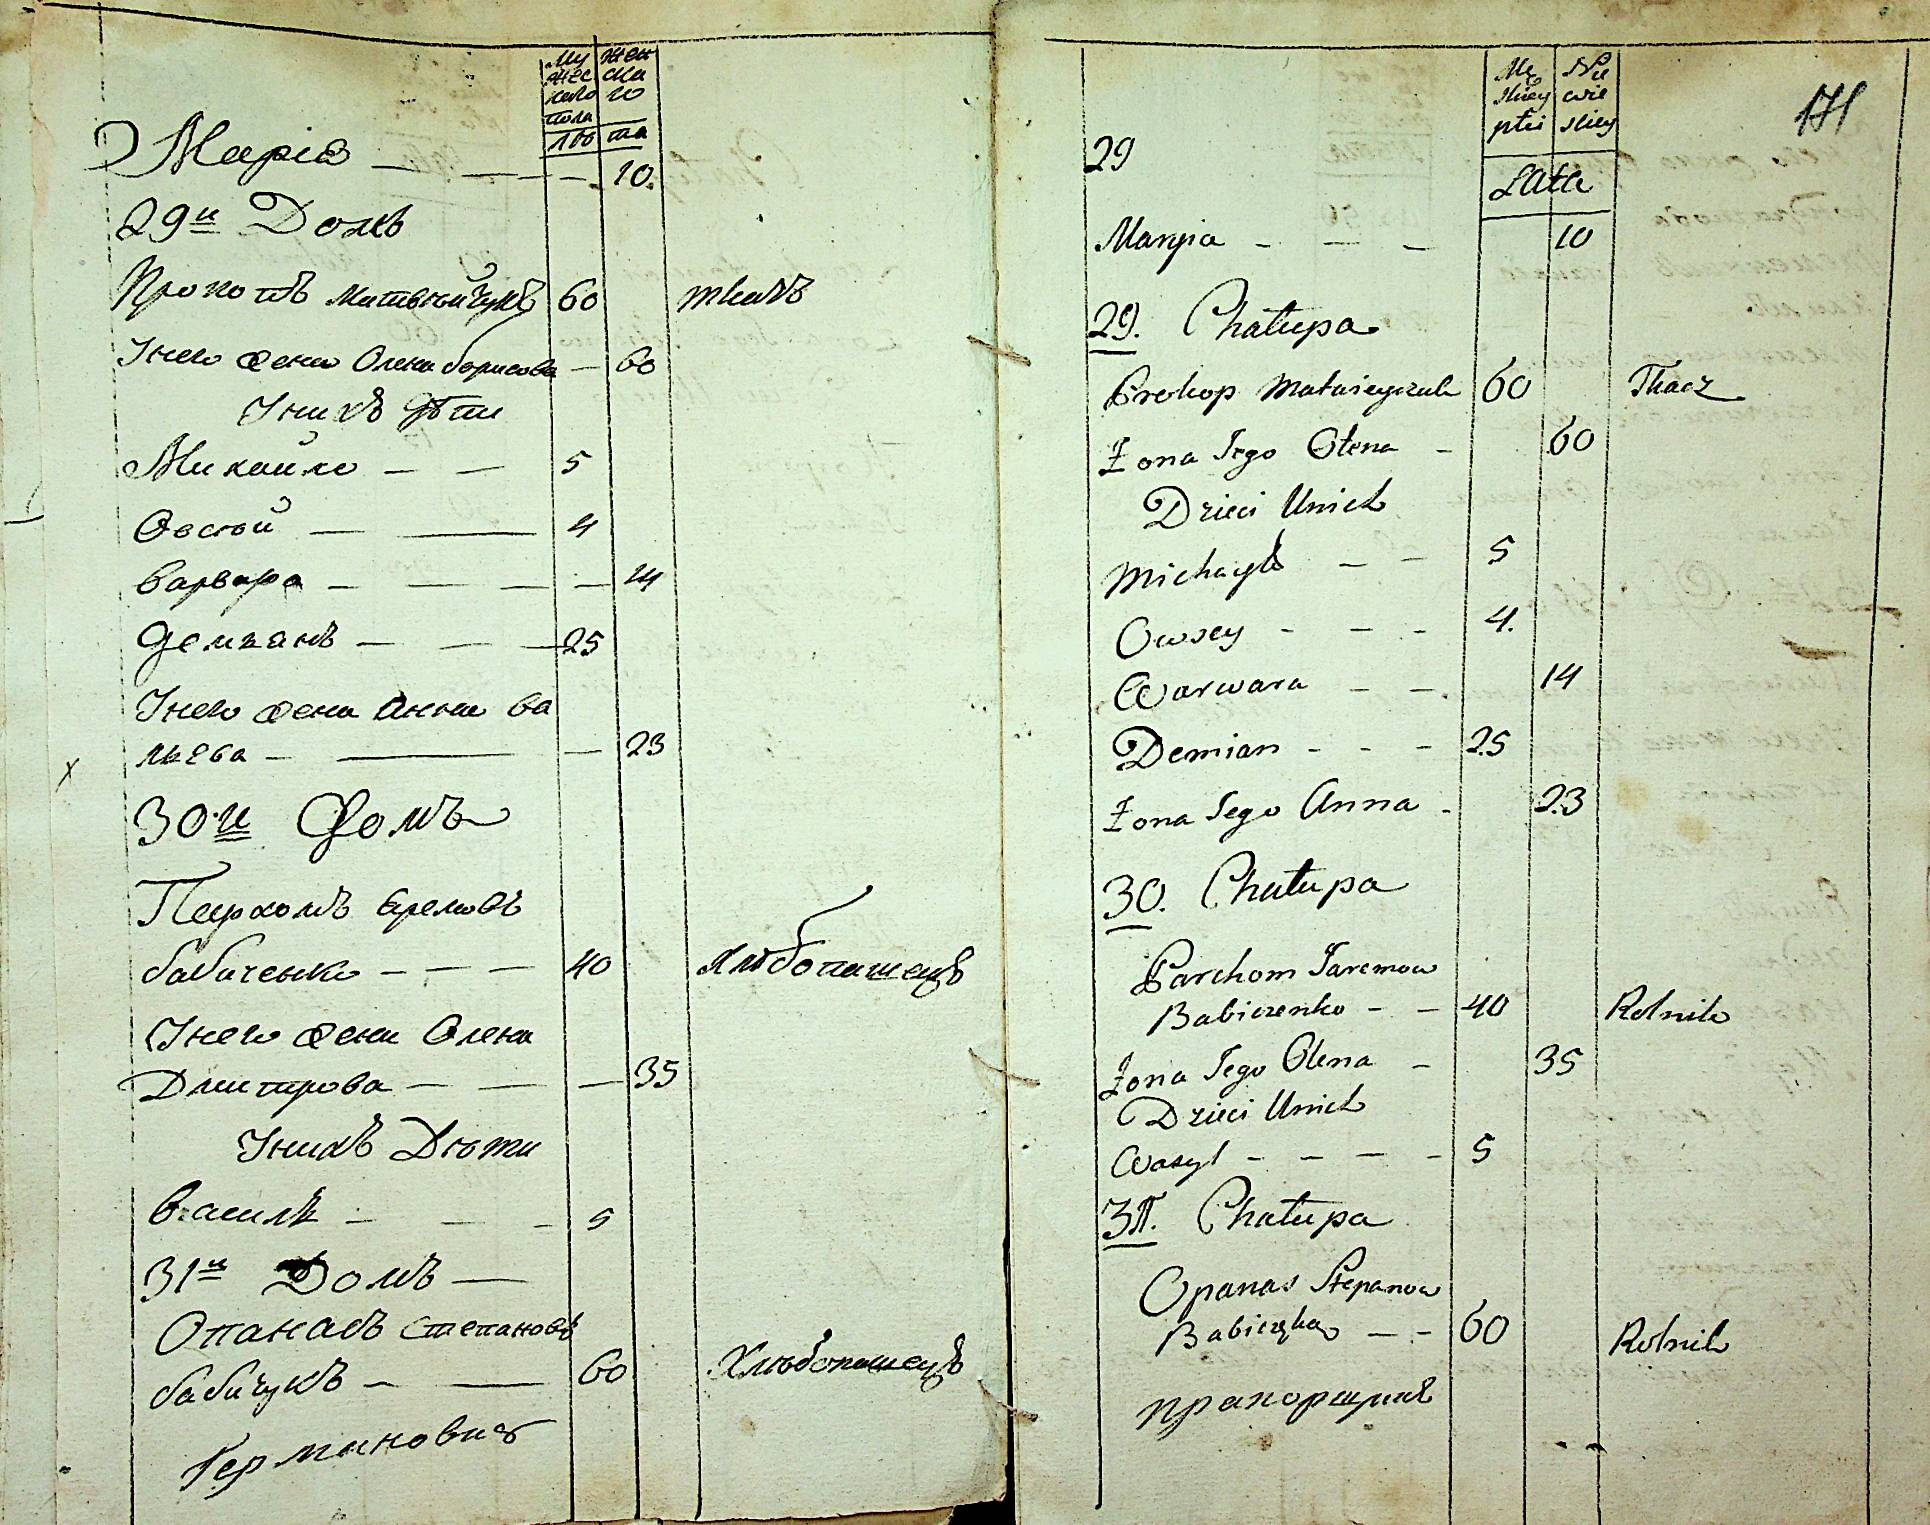 Му Жен
жес ска
каго го
пола
лѣ та
Марiя — — — 10
29й Домъ
Прокопъ Матвѣйчукъ 60 ткачъ
У него жена Олена борисова — 60
У нихъ дѣти
Михайло — — 5
Овсѣй — — 4
Варвара — — — — 14
Демьянъ — — — 25
У него жена Анна Ва
льева — — — 23
30.й Домъ
Пархомъ Яремовъ
бабиченко — — — 40 Хлѣбопашецъ
У него жена Олена
Дмитрова — — — 35
У нихъ Дѣти
Василь — — — 5
31й Домъ —
Опанасъ Степановъ
бабичукъ — — 60 Хлѣбопашецъ
Германовичъ
Mę Nie
skiey wie
płci skiey
171
29
Lata
Maryia — — — 10
29. Chałupa
Prokop Matwieyczuk 60 Tkacz
Żona Jego Ołena — 60
Dzieci Unich
Michayło — — 5
Owsey — — — 4.
Warwara — — 14
Demian — — — 25
Żona Jego Anna — 23
30. Chałupa
Parchom Jaremow
Babiczenko — — 40 Rolnik
Żona Jego Olena — 35
Dzieci Unich
Wasyl — — — — 5
31. Chałupa
Opanas Stepanow
Babiczuk — — 60 Rolnik
прапорщикъ